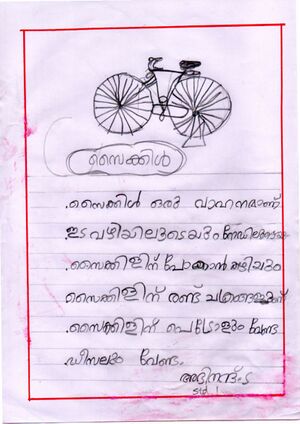 സൈക്കിൾ
.സൈക്കിൾ ഒരു വാഹനമാണ്.
ഇടവഴിയിലൂടെയും റോഡിലൂടെയും
.സൈക്കിളിന് പോകാൻ കഴിയും
സൈക്കിളിന് രണ്ട് ചക്രങ്ങളുണ്ട്
.സൈക്കിളിന് പെട്രോളും വേണ്ട
ഡീസലും വേണ്ട.
അഭിനന്ദ്.ട
std 1